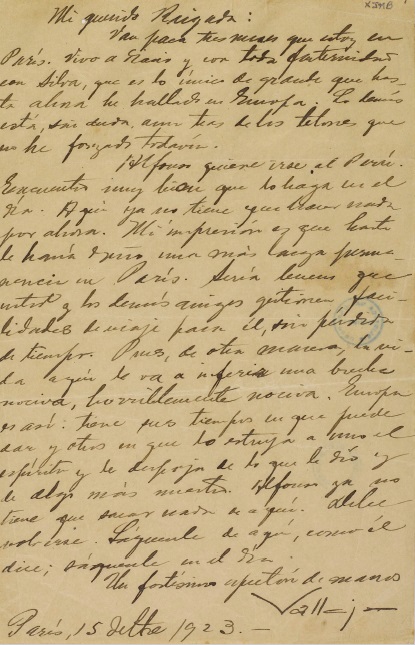 Mi querido Brigada:
Van para tres meses que estoy en
París. Vivo a diario y con toda fraternidad
con Silva, que es lo único de grande que has-
ta ahora he hallado en Europa. Lo demás
está, sin duda, aun tras de los telones que
no he forzado todavía.
Alfonso quiere irse al Perú.
Encuentro muy bien que lo haga en el
día. Aquí ya no tiene que hacer nada
por ahora. Mi impresión es que hasta
le haría daño una más larga perma-
nencia en París. Sería bueno que
usted y los demás amigos gestionen faci-
lidades de viaje para él, sin pérdida
de tiempo. Pues, de otra manera, la vi-
da aquí le va a inferir una brecha
nociva, horriblemente nociva. Europa
es así: tiene sus tiempos en que puede
dar y otros en que lo estruja a uno el
espíritu y le despoja de lo que le dió y
de algo más nuestro. Alfonso ya no
tiene que sacar nada de aquí. Debe
volverse. Sáquenle de aquí, como él
dice; sáquenle en el día.
Un fortísimo apretón de manos
Vallejo
París, 15 de 1923.—